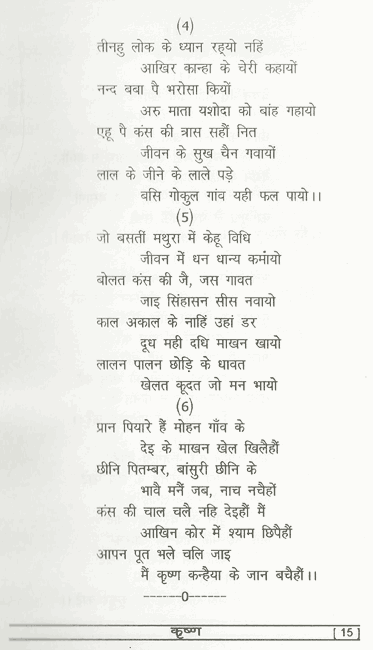 (4)
तीनहु लोक के ध्यान रह्यो नहिं
आखिर कान्हा के चेरी कहायों
नन्द बबा पै भरोसा कियों
अरु माता यशोदा को बांह गहायो
एहू पै कंस की त्रास सहौं नित
जीवन के सुख चैन गवायों
लाल के जीने के लाले पड़े
बसि गोकुल गांव यही फल पायो।।
(5)
जो बसतीं मथुरा में केहू विधि
जीवन में धन धान्य कमांयो
बोलत कंस की जै, जस गावत
जाइ सिंहासन सीस नवायो
काल अकाल के नाहिं उहां डर
दूध मही दधि माखन खायो
लालन पालन छोड़ि के धावत
खेलत कूदत जो मन भायो
(6)
प्रान पियारे हैं मोहन गाँव के
देइ के माखन खेल खिलैहौं
छीनि पितम्बर, बांसुरी छीनि के
भावै मनैं जब, नाच नचैहों
कंस की चाल चलै नहि देइहौं मैं
आखिन कोर में श्याम छिपैहौं
आपन पूत भले चलि जाइ
मैं कृष्ण कन्हैया के जान बचैहौं।।
------0------
कृष्ण [ 15 ]